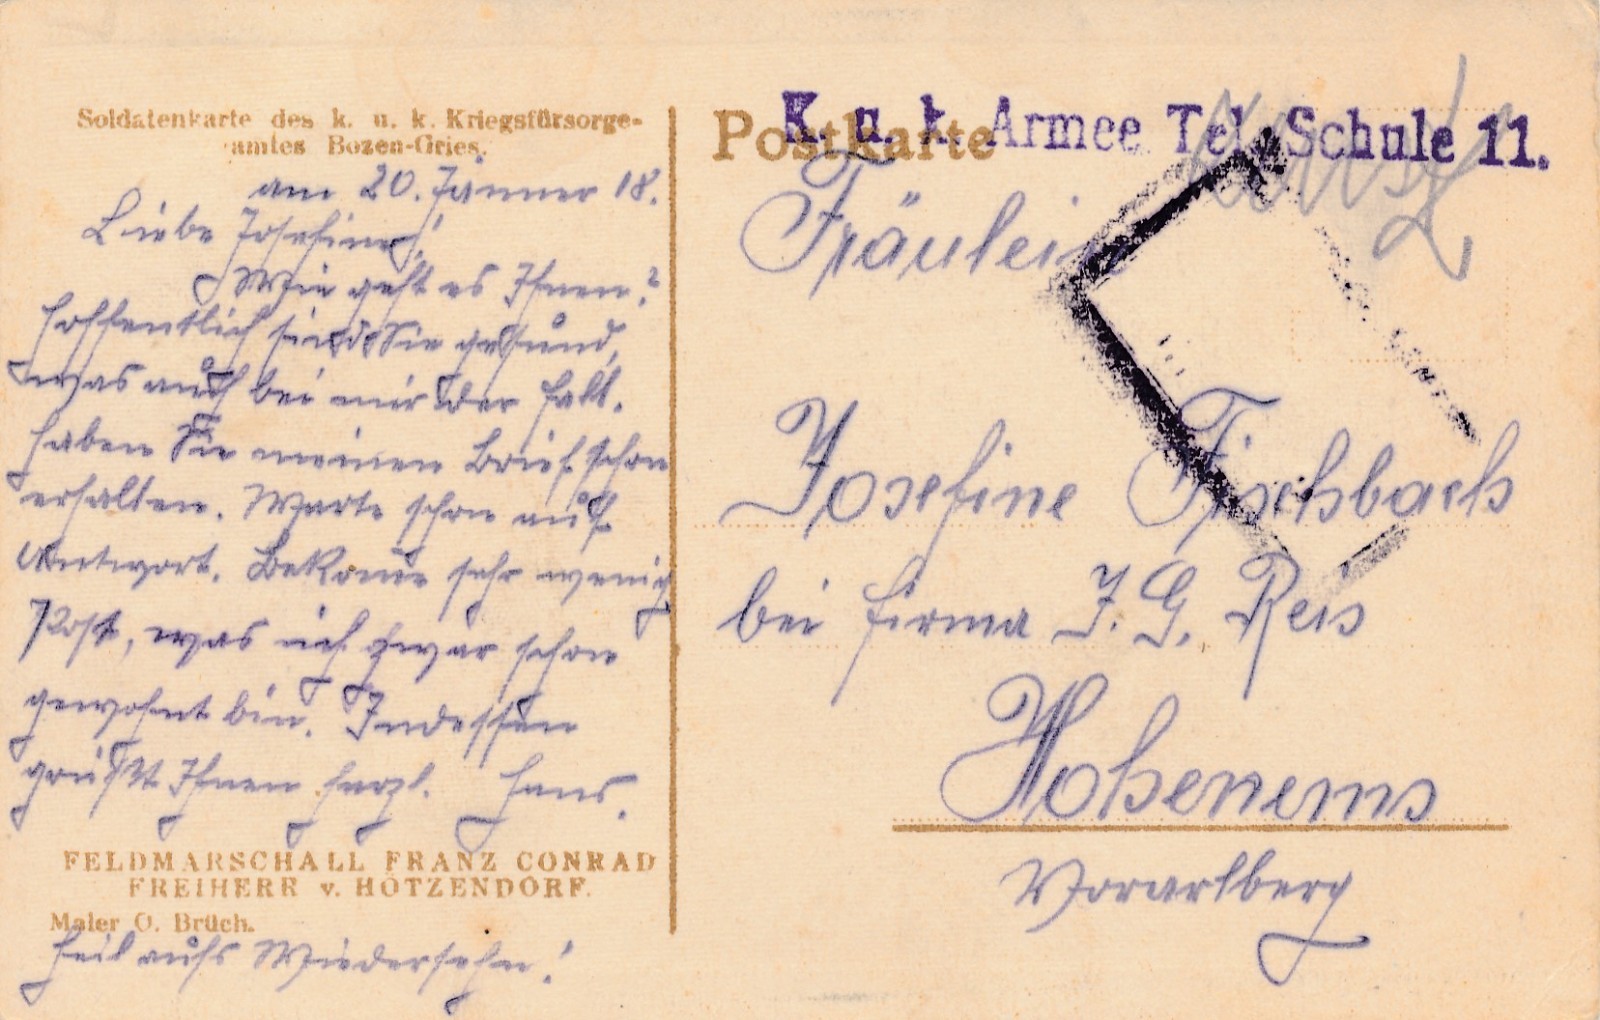 Soldatenkarte des k. u. k. Kriegsfürsorge-
amtes Bozen-Gries.
am 20. Jänner 18.
Liebe Josefine!
Wie geht es Ihnen?
Hoffentlich sind Sie gesund,
was auch bei mir der Fall.
Haben Sie meinen Brief schon
erhalten. Warte schon auf
Antwort. Bekome sehr wenig
Post, was ich zwar schon
gewohnt bin. Indessen
grüßt Ihnen herzl. Hans.
FELDMARSCHALL FRANZ CONRAD
FREIHERR v. HÖTZENDORF.
Maler O. Brüch.
Heil aufs Wiedersehn!
Postkarte
K. u. k. Armee Tel. Schule 11.
Fräulein
Josefine Fischbach
bei Firma J. G. Reis
Hohenems
Vorarlberg